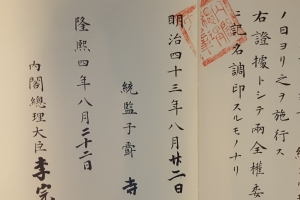 ノ日ヨリ之ヲ施行ス
右證據トシテ兩全權委
ニ記名調印スルモノナリ
明治四十三年八月廿二日
統監子爵 寺
隆熙四年八月二十二日
內閣總理大臣 李完